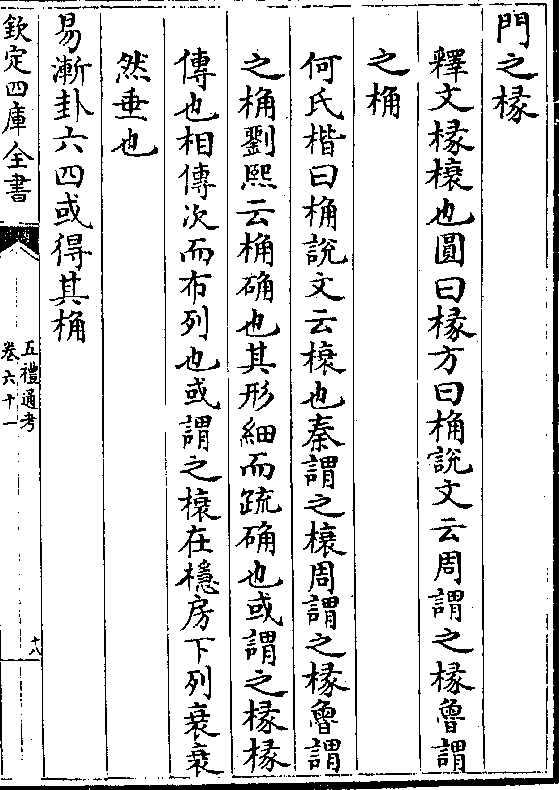 門之椽
釋文椽榱也圓曰椽方曰桷說文云周謂之椽魯謂
之桷
何氏楷曰桷說文云榱也秦謂之榱周謂之椽魯謂
之桷劉熙云桷确也其形細而疏确也或謂之椽椽
傳也相傳次而布列也或謂之榱在檼房下列衰衰
然垂也
易漸卦六四或得其桷
欽定四庫全書
五禮通考
卷六十一
十八